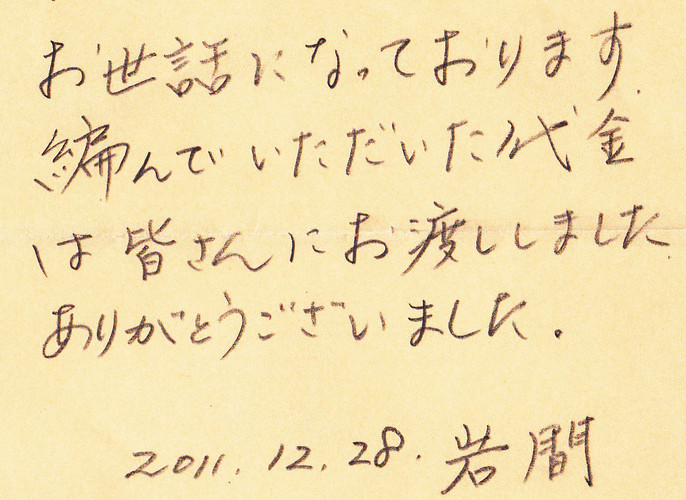 お世話になっております.
編んでいただいた代金
は皆さんにお渡ししました
ありがとうございました.
2011.12.28.岩間